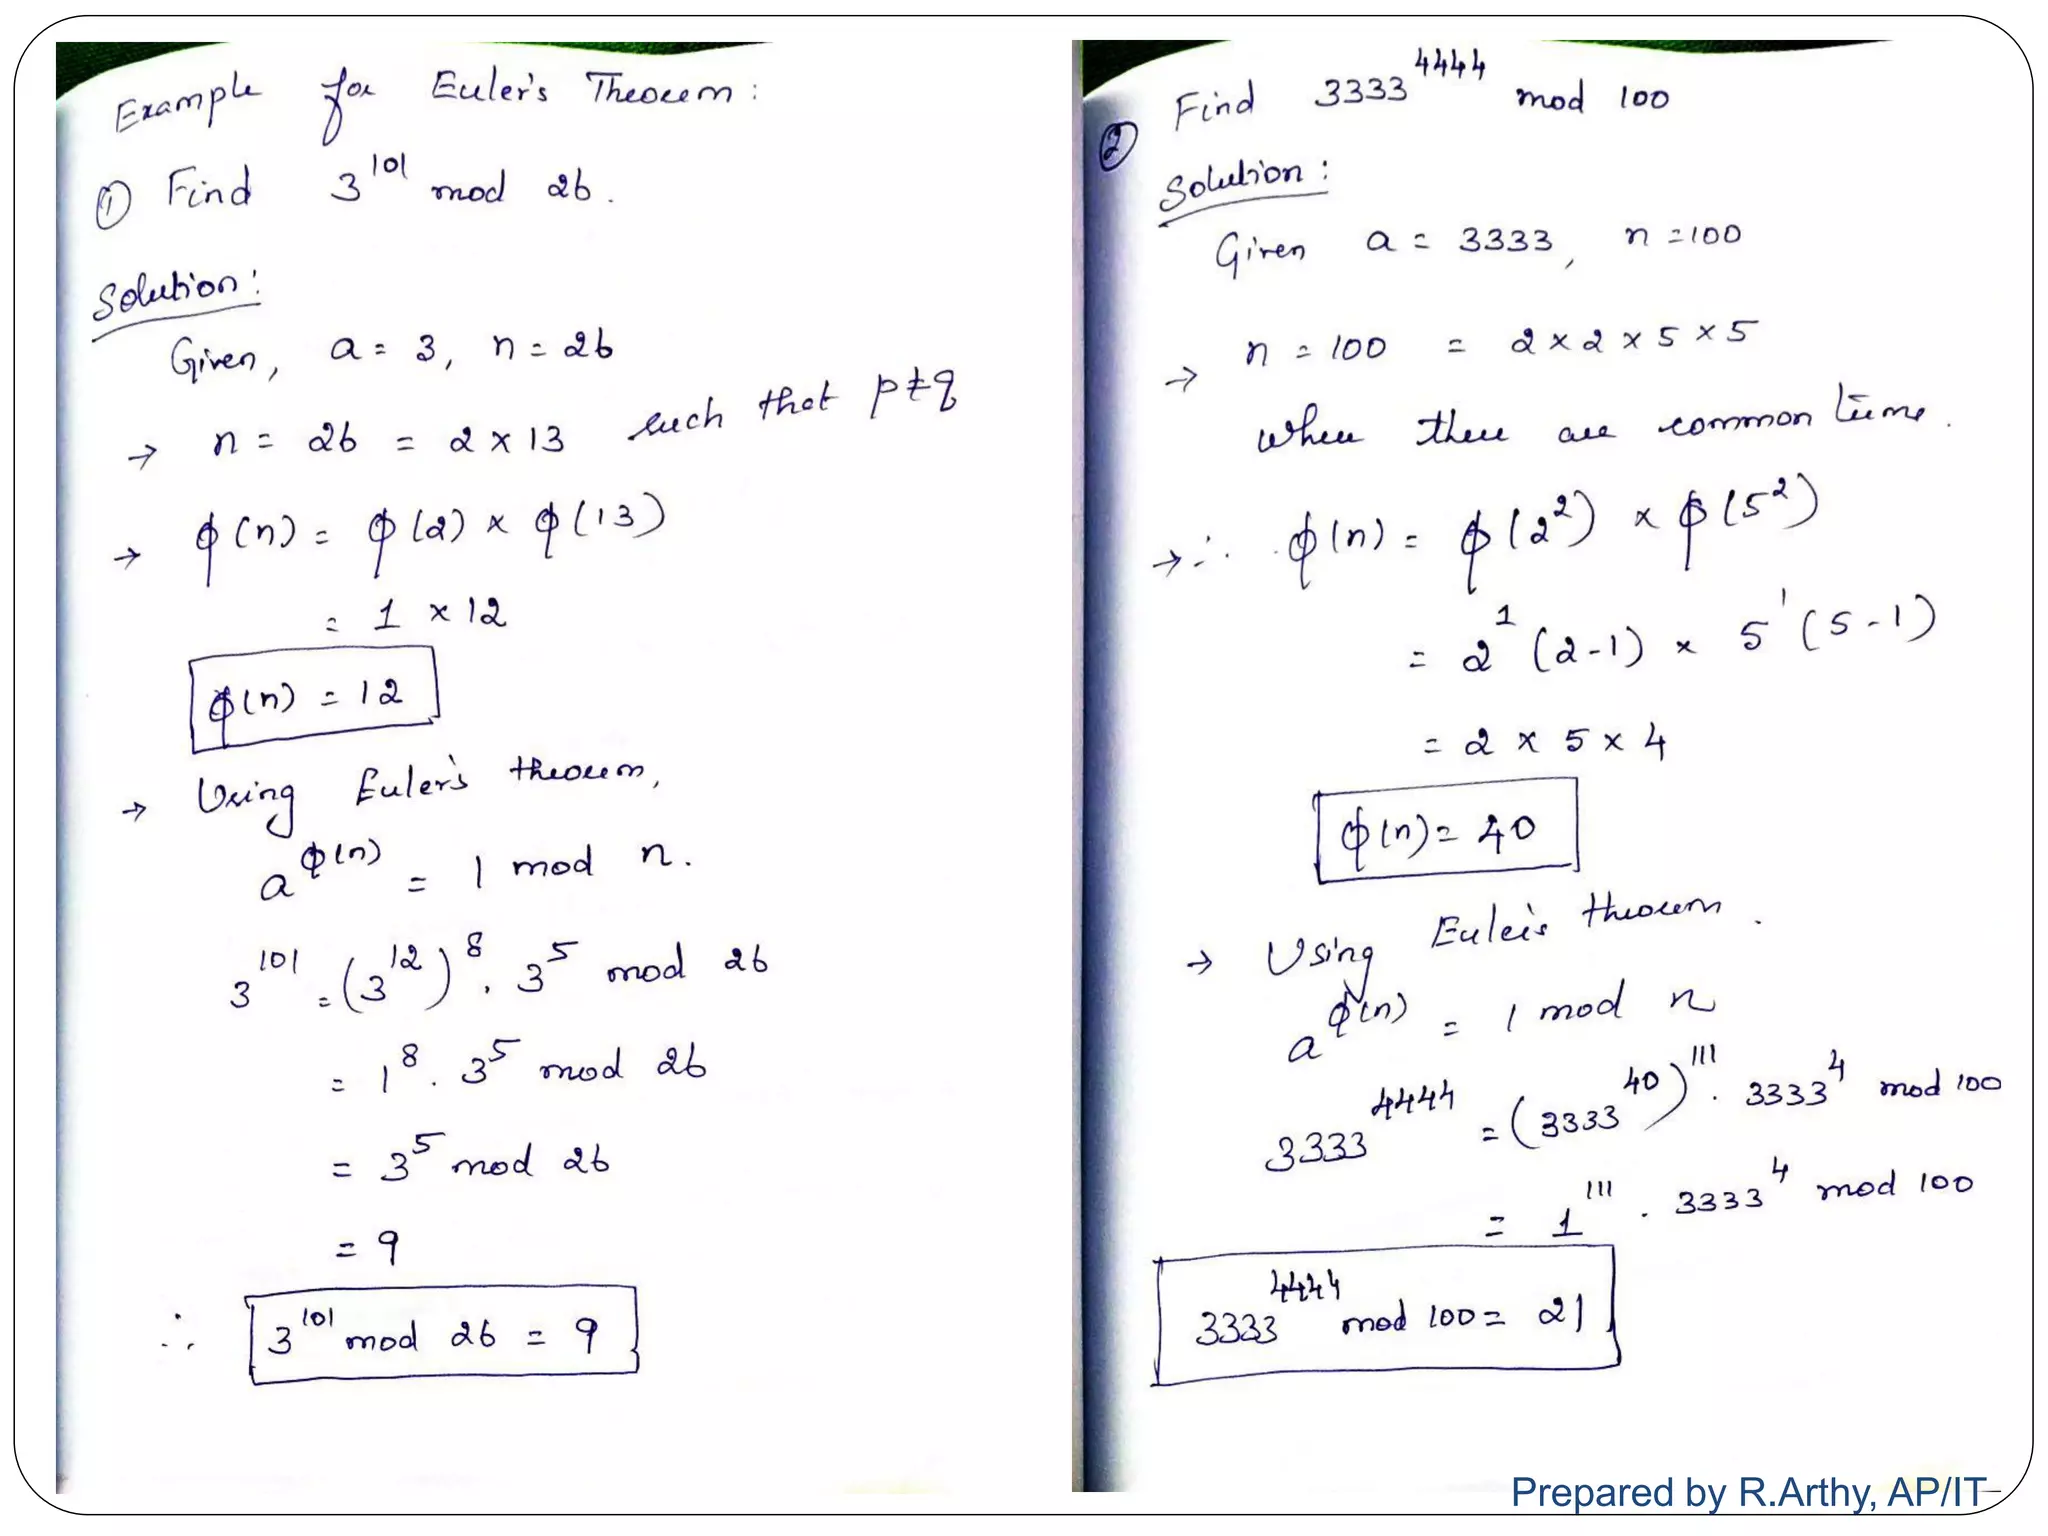 Example for Euler's Theorem :
① Find 3^101 mod 26.
Solution :
Given, a = 3, n = 26
→ n = 26 = 2 × 13 such that p ≠ q
→ ϕ(n) = ϕ(2) × ϕ(13)
= 1 × 12
ϕ(n) = 12
→ Using Euler's theorem,
a^ϕ(n) = 1 mod n.
3^101 = (3^12)^8 . 3^5 mod 26
= 1^8 . 3^5 mod 26
= 3^5 mod 26
= 9
∴ 3^101 mod 26 = 9
② Find 3333^4444 mod 100
Solution :
Given a = 3333, n = 100
→ n = 100 = 2 × 2 × 5 × 5
when there are common terms.
→ ∴ ϕ(n) = ϕ(2^2) × ϕ(5^2)
= 2^1 (2-1) × 5^1 (5-1)
= 2 × 5 × 4
ϕ(n) = 40
→ Using Euler's theorem.
a^ϕ(n) = 1 mod n
3333^4444 = (3333^40)^111 . 3333^4 mod 100
= 1^111 . 3333^4 mod 100
3333^4444 mod 100 = 21
Prepared by R.Arthy, AP/IT